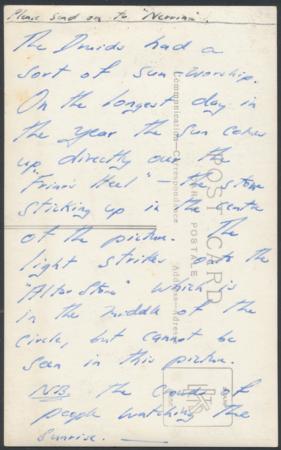 Please send on to "Nerrina".
The Druids had a
sort of sun worship.
On the longest day in
the year the sun comes
up directly over the
"Friar's Heel" – the stone
sticking up in the centre
of the picture. The
light strikes onto the
"Altar Stone" which is
in the middle of the
circle, but cannot be
seen in this picture.
N.B. the crowds of
people watching the
sunrise.
POST CARD
CARTE POSTALE
Communication—Correspondance
Address—Adresse